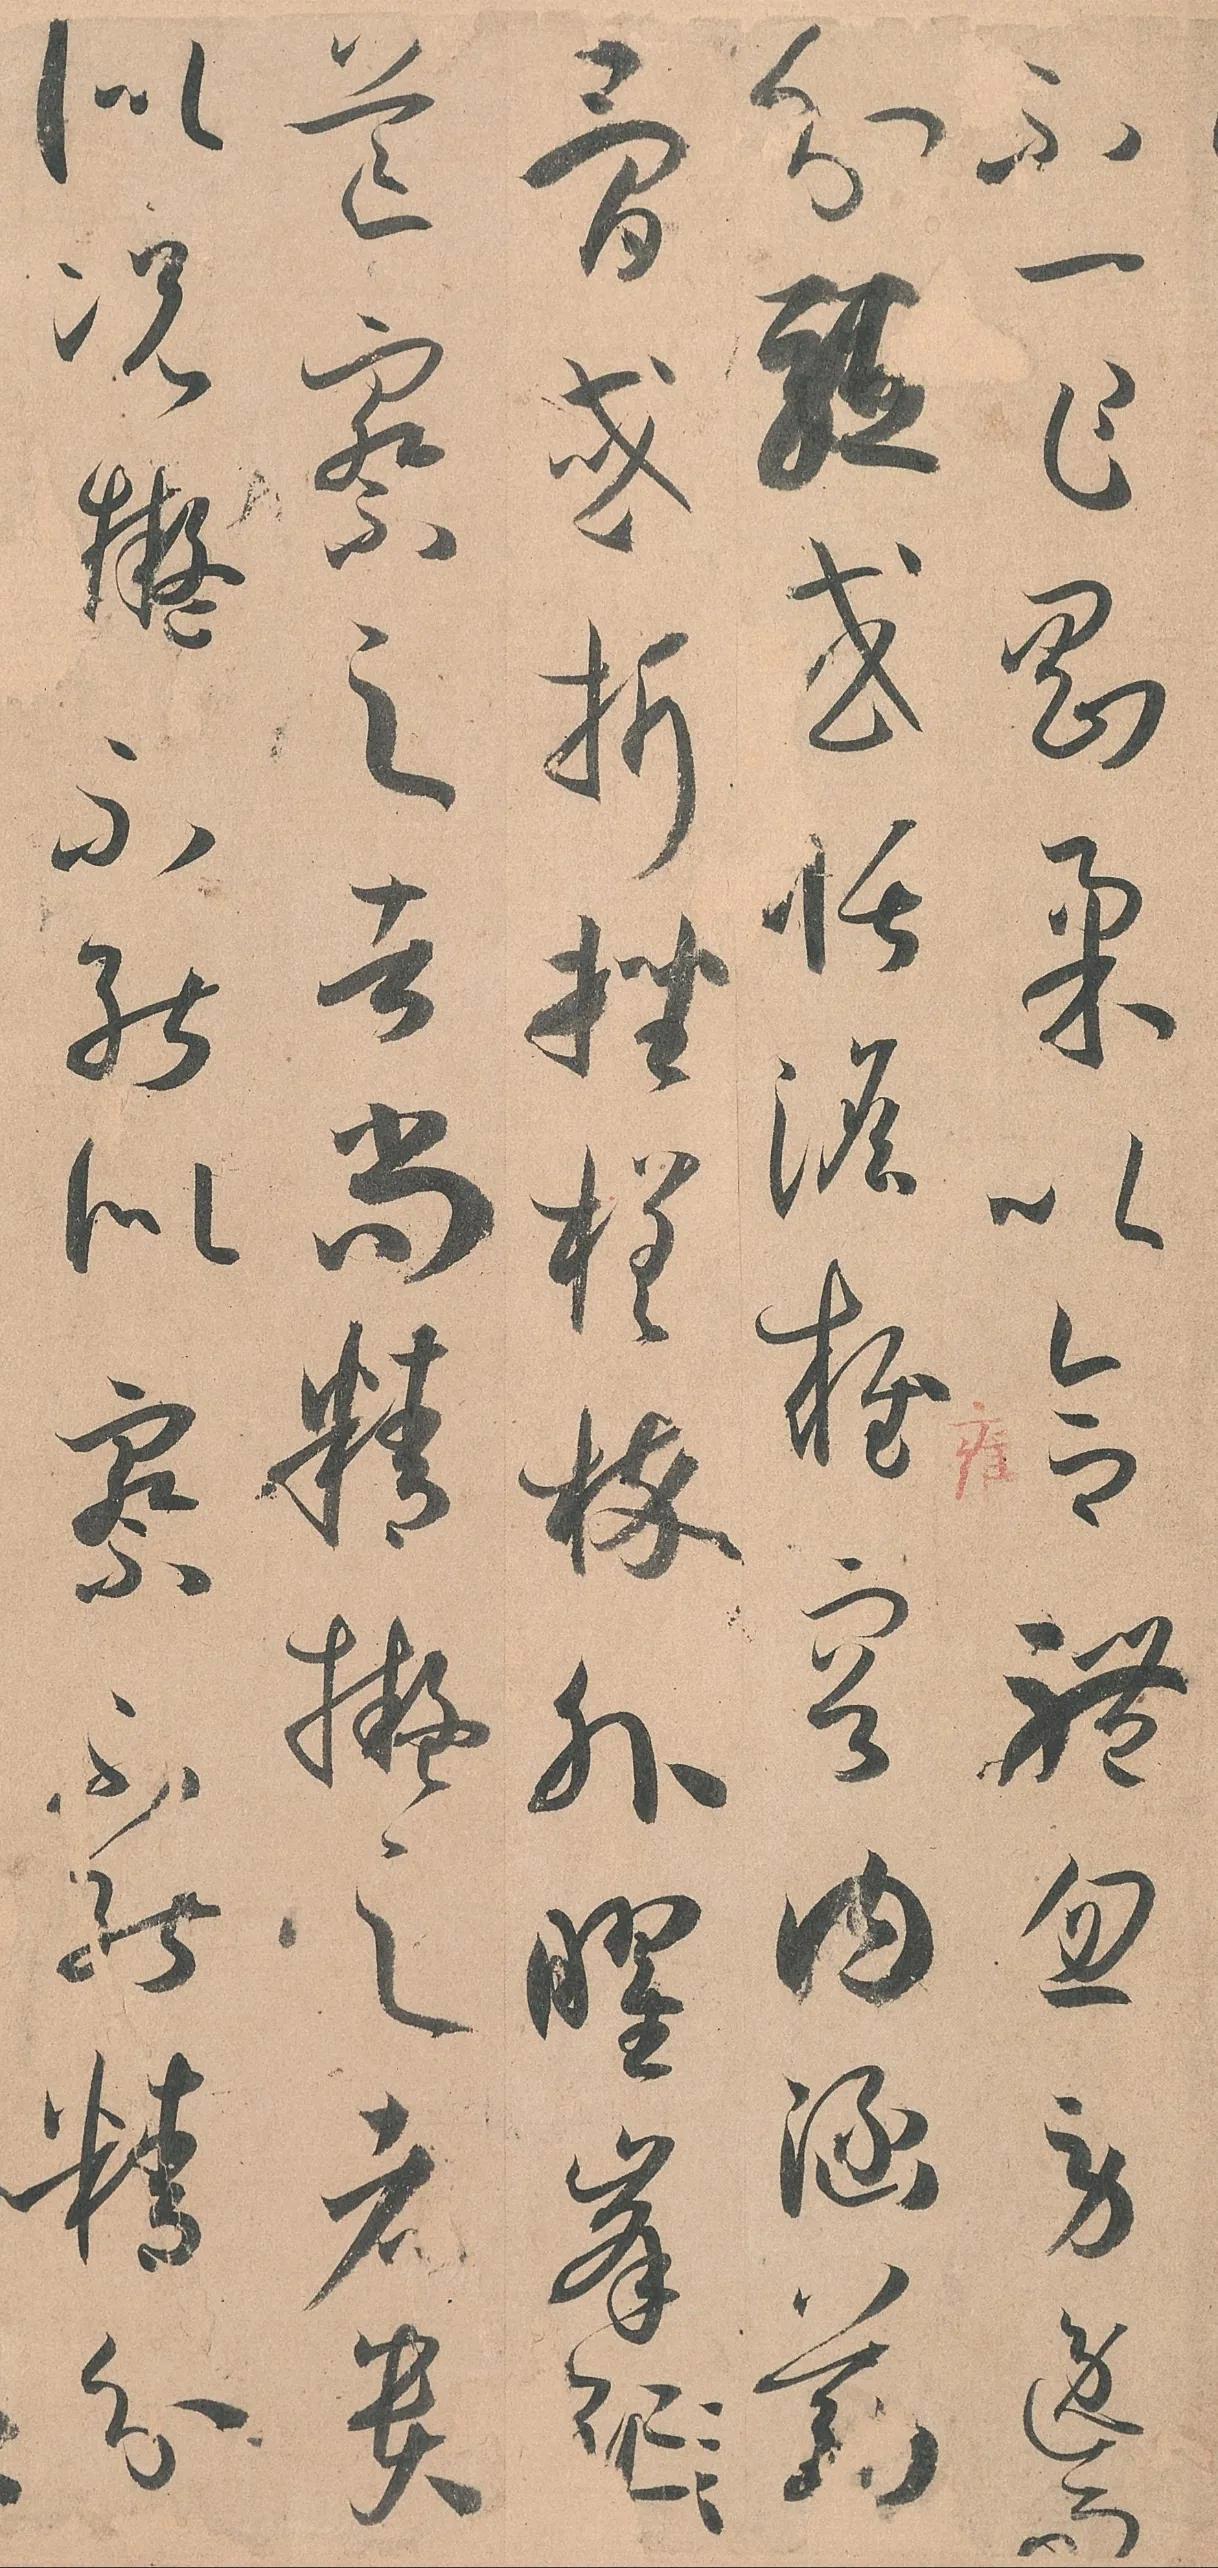 不一乍剛柔以合體忽勞逸而
分驅或恬澹雍容內涵筋
骨或折挫槎枿外曜峯
芒察之者尚精擬之者貴
似況擬不能似察不能精分